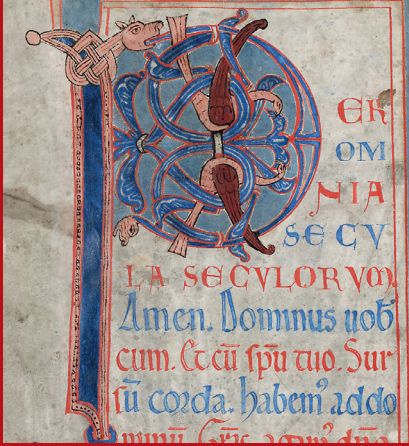 PER
OM
NIA
SECV
LA SECVLORVM.
Amen. Dominus uob̄
cum. Et cū sp̄u tuo. Sur
sū corda. habemꝰ addo